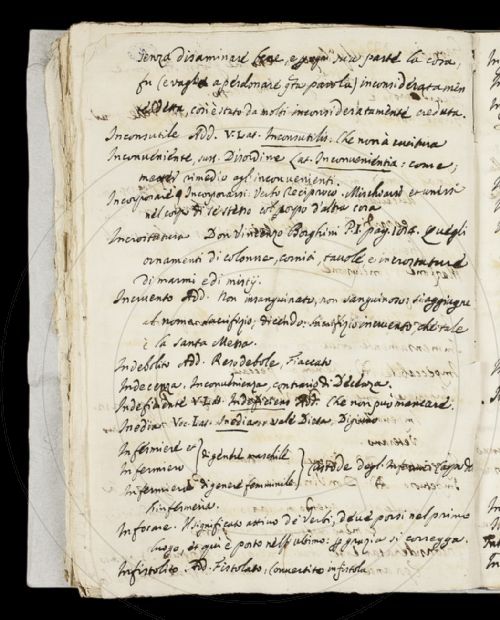 senza disaminare bene, e sua parte la cosa,
fu (e vaglia a perdonare q̃ta parola) inconsideratamen
te detta, così è stato da molti inconsideratamente creduta.
Inconsutile Add. V. Lat. Inconsutilis. Che non à cucitura
Inconveniente, sus. Disordine Lat. Inconvenientia: come,
rimedio agl'inconvenienti.
Incorporare Incorporarsi: Verbo Reciproco. Mischiarsi et unirsi
nel corpo di se stesso col corpo d'altra cosa
Incrostatura Don Vincenzo Borghini P. I. pag. Quegli
ornamenti di colonne, cornici, tavole e incrostature
di marmi e di
Incruento Add. Non insanguinato, non sanguinoso; si aggiugne
al nome sacrifizio; dicendo: sacrifizio incruento che tale
è la Santa Messa.
Indebolito Add. Reso debole, Fiaccato
Indecenza. Inconvenienza, contrario di Decenza.
Indefiniente V. Lat. Add. Che non può mancare.
Inedia Voc. Lat. Inedia vale Dieta, Digiuno
Infermiere et
Infermiero di gener maschile
custode degl'Infermi
Infermiera di genere femminile
Infermeria.
Infocare. Il significato attivo de' Verbi, deve porsi nel primo
luogo, et qui è posto nell'ultimo: p̃ grazia si corregga.
Infistolito. Add. Fistolato, Convertito in fistola